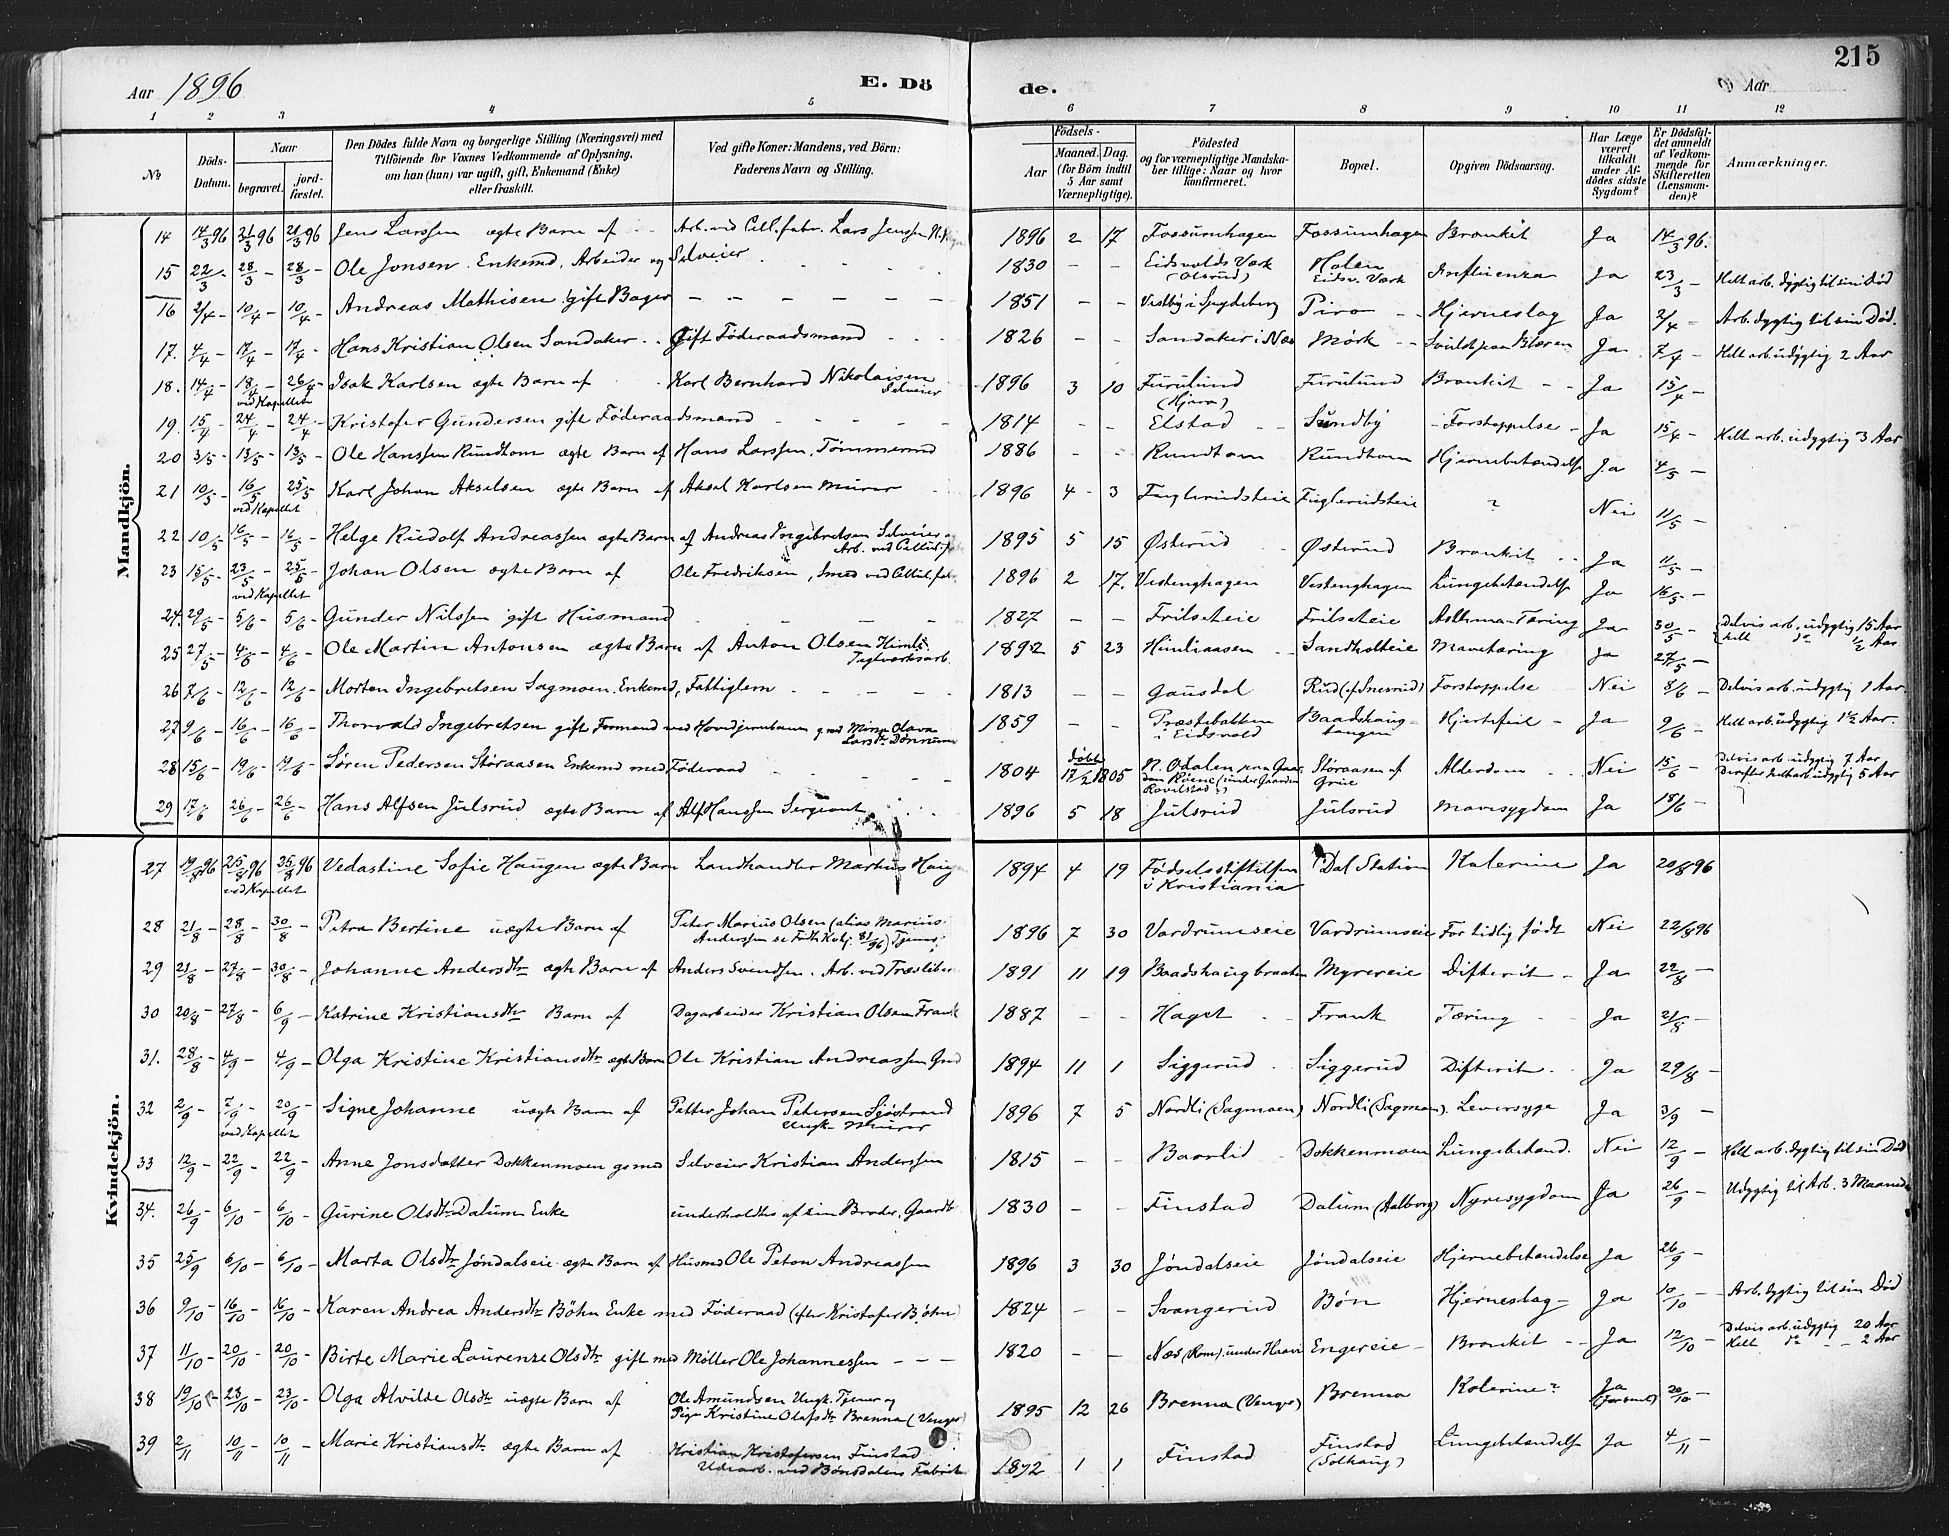 215
Aar 1896 E. Dö de. Aar
1 2 3 4 5 6 7 8 9 10 11 12
No
Döds-Datum.
Naar
begravet. jord-fæstet.
Den Dödes fulde Navn og borgerlige Stilling (Næringsvei) med
Tilföiende for Voxnes Vedkommende af Oplysning,
om han (hun) var ugift, gift, Enkemand (Enke)
eller fraskilt.
Ved gifte Koner: Mandens, ved Börn:
Faderens Navn og Stilling.
Födsels-
Aar Maaned. Dag.
(for Börn indtil
5 Aar samt
Værnepligtige).
Födested
og for værnepligtige Mandska-
ber tillige: Naar og hvor
konfirmeret.
Bopæl.
Opgiven Dödsaarsag.
Har Læge
været
tilkaldt
under Af-
dödes sidste
Sygdom?
Er Dödsfal-
det anmeldt
af Vedkom-
mende for
Skifteretten
(Lensman-
den)?
Anmærkninger.
Mandkjön.
14 14/3 96 21/3 96 21/3 96 Jens Larssen ægte Barn af Arb. ved Cell. fabr. Lars Jenssen 1896 2 17 Fossumhagen Fossumhagen Bronkit Ja 14/3 96.
15 22/3 - 28/3 - 28/3 - Ole Jonsen. Enkemd, Arbeider og Selveier 1830 - - Eidsvolds Værk (Olsrud) Holen Eidsv. Værk Influenza Ja 23/3 - Helt arb. dygtig til sin Död
16 2/4 - 10/4 - 10/4 - Andreas Mathisen gift Bager - - - - - - 1851 - - Vestby i Spydeberg Piro - - Hjerneslag Ja 2/4 - Arb. dygtig til sin Död.
17. 4/4 - 17/4 - 17/4 - Hans Kristian Olsen Sandaker - Gift Föderaadsmand 1826 - - Sandaker i Næs Mørk - - Svulst paa Blæren Ja 7/4 - Helt arb. udygtig 2 Aar
18. 14/4 - 18/4 - ved Kapellet 26/4 - Isak Karlsen ægte Barn af Karl Bernhard Nikolaisen Selveier 1896 3 10 Furulund (Hjera) Furulund Bronkit - - Ja 15/4 -
19. 15/4 - 24/4 - 24/4 - Kristofer Gundersen gift Föderaadsmand 1814 - - Elstad Sundby Forstoppelse - Ja 15/4 - Helt arb. udygtig 3 Aar
20 3/5 - 13/5 - 13/5 - Ole Hanssen Rundtom ægte Barn af Hans Larssen, Tömmermd 1886 - - Rundtom Rundtom Hjernebetændelse Ja 4/5 -
21 10/5 - 16/5 ved Kapellet 25/5 Karl Johan Akselsen ægte Barn af Aksel Karlsen Murer 1896 4 - 3 Fuglerudseie Fuglerudseie ? Nei 11/5 -
22 10/5 - 16/5 - 16/5 - Helge Rudolf Andreassen ægte Barn af Andreas Ingebretsen Selveier Arb. ved Cellul. fab. 1895 5 15 Østerud Østerud Bronkit Ja 11/5 -
23 15/5 - 23/5 - ved Kapellet 25/5 - Johan Olsen ægte Barn af Ole Fredriksen, Smed ved Cellul. fab. 1896 2 17. Vestenghagen Vestenghagen Lungebetændelse Ja 16/5 -
24. 29/5 - 5/6 - 5/6 - Gunder Nilssen gift Husmand 1827 - - Frilseteie Frilseteie Asthma-Tæring Ja 30/5 - Delvis arb. udygtig 15 Aar helt do 1/2 Aar
25 27/5 - 4/6 - 4/6 - Ole Martin Antonsen ægte Barn af Anton Olsen Himli Teglværksarb. 1892 5 23 Himliaasen Sandholteie Mavetæring Ja 27/5 -
26 7/6 - 12/6 - 12/6 - Morten Ingebretsen Sagmoen. Enkemd, Fattiglem 1813 - - Gausdal Rud (af Snesrud) Forstoppelse Nei 8/6 - Delvis arb. udygtig 1 Aar.
27 9/6 - 16/6 - 16/6 - Thorvald Ingebretsen gift Formand ved Hovedjernbanen g. med Mina Olava Larsdtr Dönnum 1859 - - Præstebakken i Eidsvold Baadshaug-tangen Hjertefeil - Ja 9/6 - Helt arb. udygtig 1 1/2 Aar.
28 15/6 - 19/6 - 19/6 - Sören Pedersen Störaasen Enkemd med Föderaad 1804 döbt 17/2 1805 N. Odalen paa Gaarden Röine (under Gaarden Rovilstad?) Störaasen af Grue Alderdom Nei 15/6 - Delvis arb. udygtig 7 Aar Derefter helt arb. udygtig 5 Aar
29 17/6 26/6 - 26/6 - Hans Alfsen Julsrud ægte Barn af Alf Hanssen Sergeant 1896 5 18 Julsrud Julsrud Mavesygdom Ja 18/6 -
Kvindekjön.
27 19/8 96 25/8 96 ved Kapellet 25/8 96 Vedastine Sofie Haugen ægte Barn Landhandler Martius Haugen 1894 4 19 Födselsstiftelsen i Kristiania Dal Station Kolerine Ja 20/8 96
28 21/8 - 28/8 - 30/8 - Petra Bertine uægte Barn af Peter Marius Olsen (alias Marius Anderssen se Födte Kvkj. 81/96) Tjener 1896 7 30 Vardrumseie Vardrumseie For tidlig födt Nei 22/8 96
29 21/8 - 27/8 - 30/8 - Johanne Andersdtr ægte Barn af Anders Svendsen. Arb. ved Træsliber 1891 11 19 Baadshaugbraaten Myrereie Difterit - Ja 22/8 -
30 20/8 - 27/8 - 6/9 - Katrine Kristiansdtr Barn af Dagarbeider Kristian Olsen Frank 1887 - - Haget Frank Tæring Ja 21/8 -
31. 28/8 - 4/9 - 4/9 - Olga Kristine Kristiansdtr ægte Barn Ole Kristian Andreassen Gmd 1894 11 1 Siggerud Siggerud Difterit Ja 29/8 -
32 2/9 - 7/9 - ved Kapellet 20/9 - Signe Johanne uægte Barn af Petter Johan Petersen Sjöstrand Ungk. Murer 1896 7 5 Nordli (Sagmoen) Nordli (Sagmoen). Leversyge Ja 3/9 -
33 12/9 - 22/9 - 22/9 - Anne Jonsdatter Dokkenmoen g. med Selveier Kristian Anderssen 1815 - - Baarlid Dokkenmoen Lungebetænd. Nei 12/9 - Helt arb. dygtig til sin Död
34. 26/9 - 6/10 - 6/10 - Gurine Olsdtr Dalum Enke underholdtes af sin Broder, Gaardb 1830 - - Finstad Dalum (Aalborg) Nyresygdom Ja 26/9 - Udygtig til Arb. 3 Maaneder
35 25/9 6/10 - 6/10 - Marta Olsdtr Jöndalseie ægte Barn af Husmd Ole Peton Andreassen 1896 3 30 Jöndalseie Jöndalseie Hjernebetændelse Ja 26/9 -
36 9/10 - 16/10 - 16/10 - Karen Andrea Andersdtr Böhn Enke med Föderaad (efter Kristofer Böhn) 1824 - - Svangerud Bön Hjerneslag - Ja 10/10 - Arb. dygtig til sin Död
37 11/10 - 20/10 - 20/10 - Birte Marie Laurenze Olsdtr gift med Möller Ole Johannessen - - - 1820 - - Næs (Rom). under Haavi Engereie - Bronkit - - Ja 12/10 - Delvis arb. udygtig 20 Aar Helt do - 2 Aar
38 19/10 - 23/10 - 23/10 - Olga Alvilde Olsdtr uægte Barn af Ole Amundsen Ungk. Tjener og Pige Kristine Olafsdtr Brenna (Venger) 1895 12 26 Brenna (Venger) Brenna Kolerine? Ja 20/10 -
39 2/11 10/11 - 10/11 - Marie Kristiansdtr ægte Barn af Kristian Kristofersen Finstad Udearb. ved Bönsdalens Fabrik 1872 1 1 Finstad Finstad (Solhaug) Lungebetændelse Ja 4/11 -